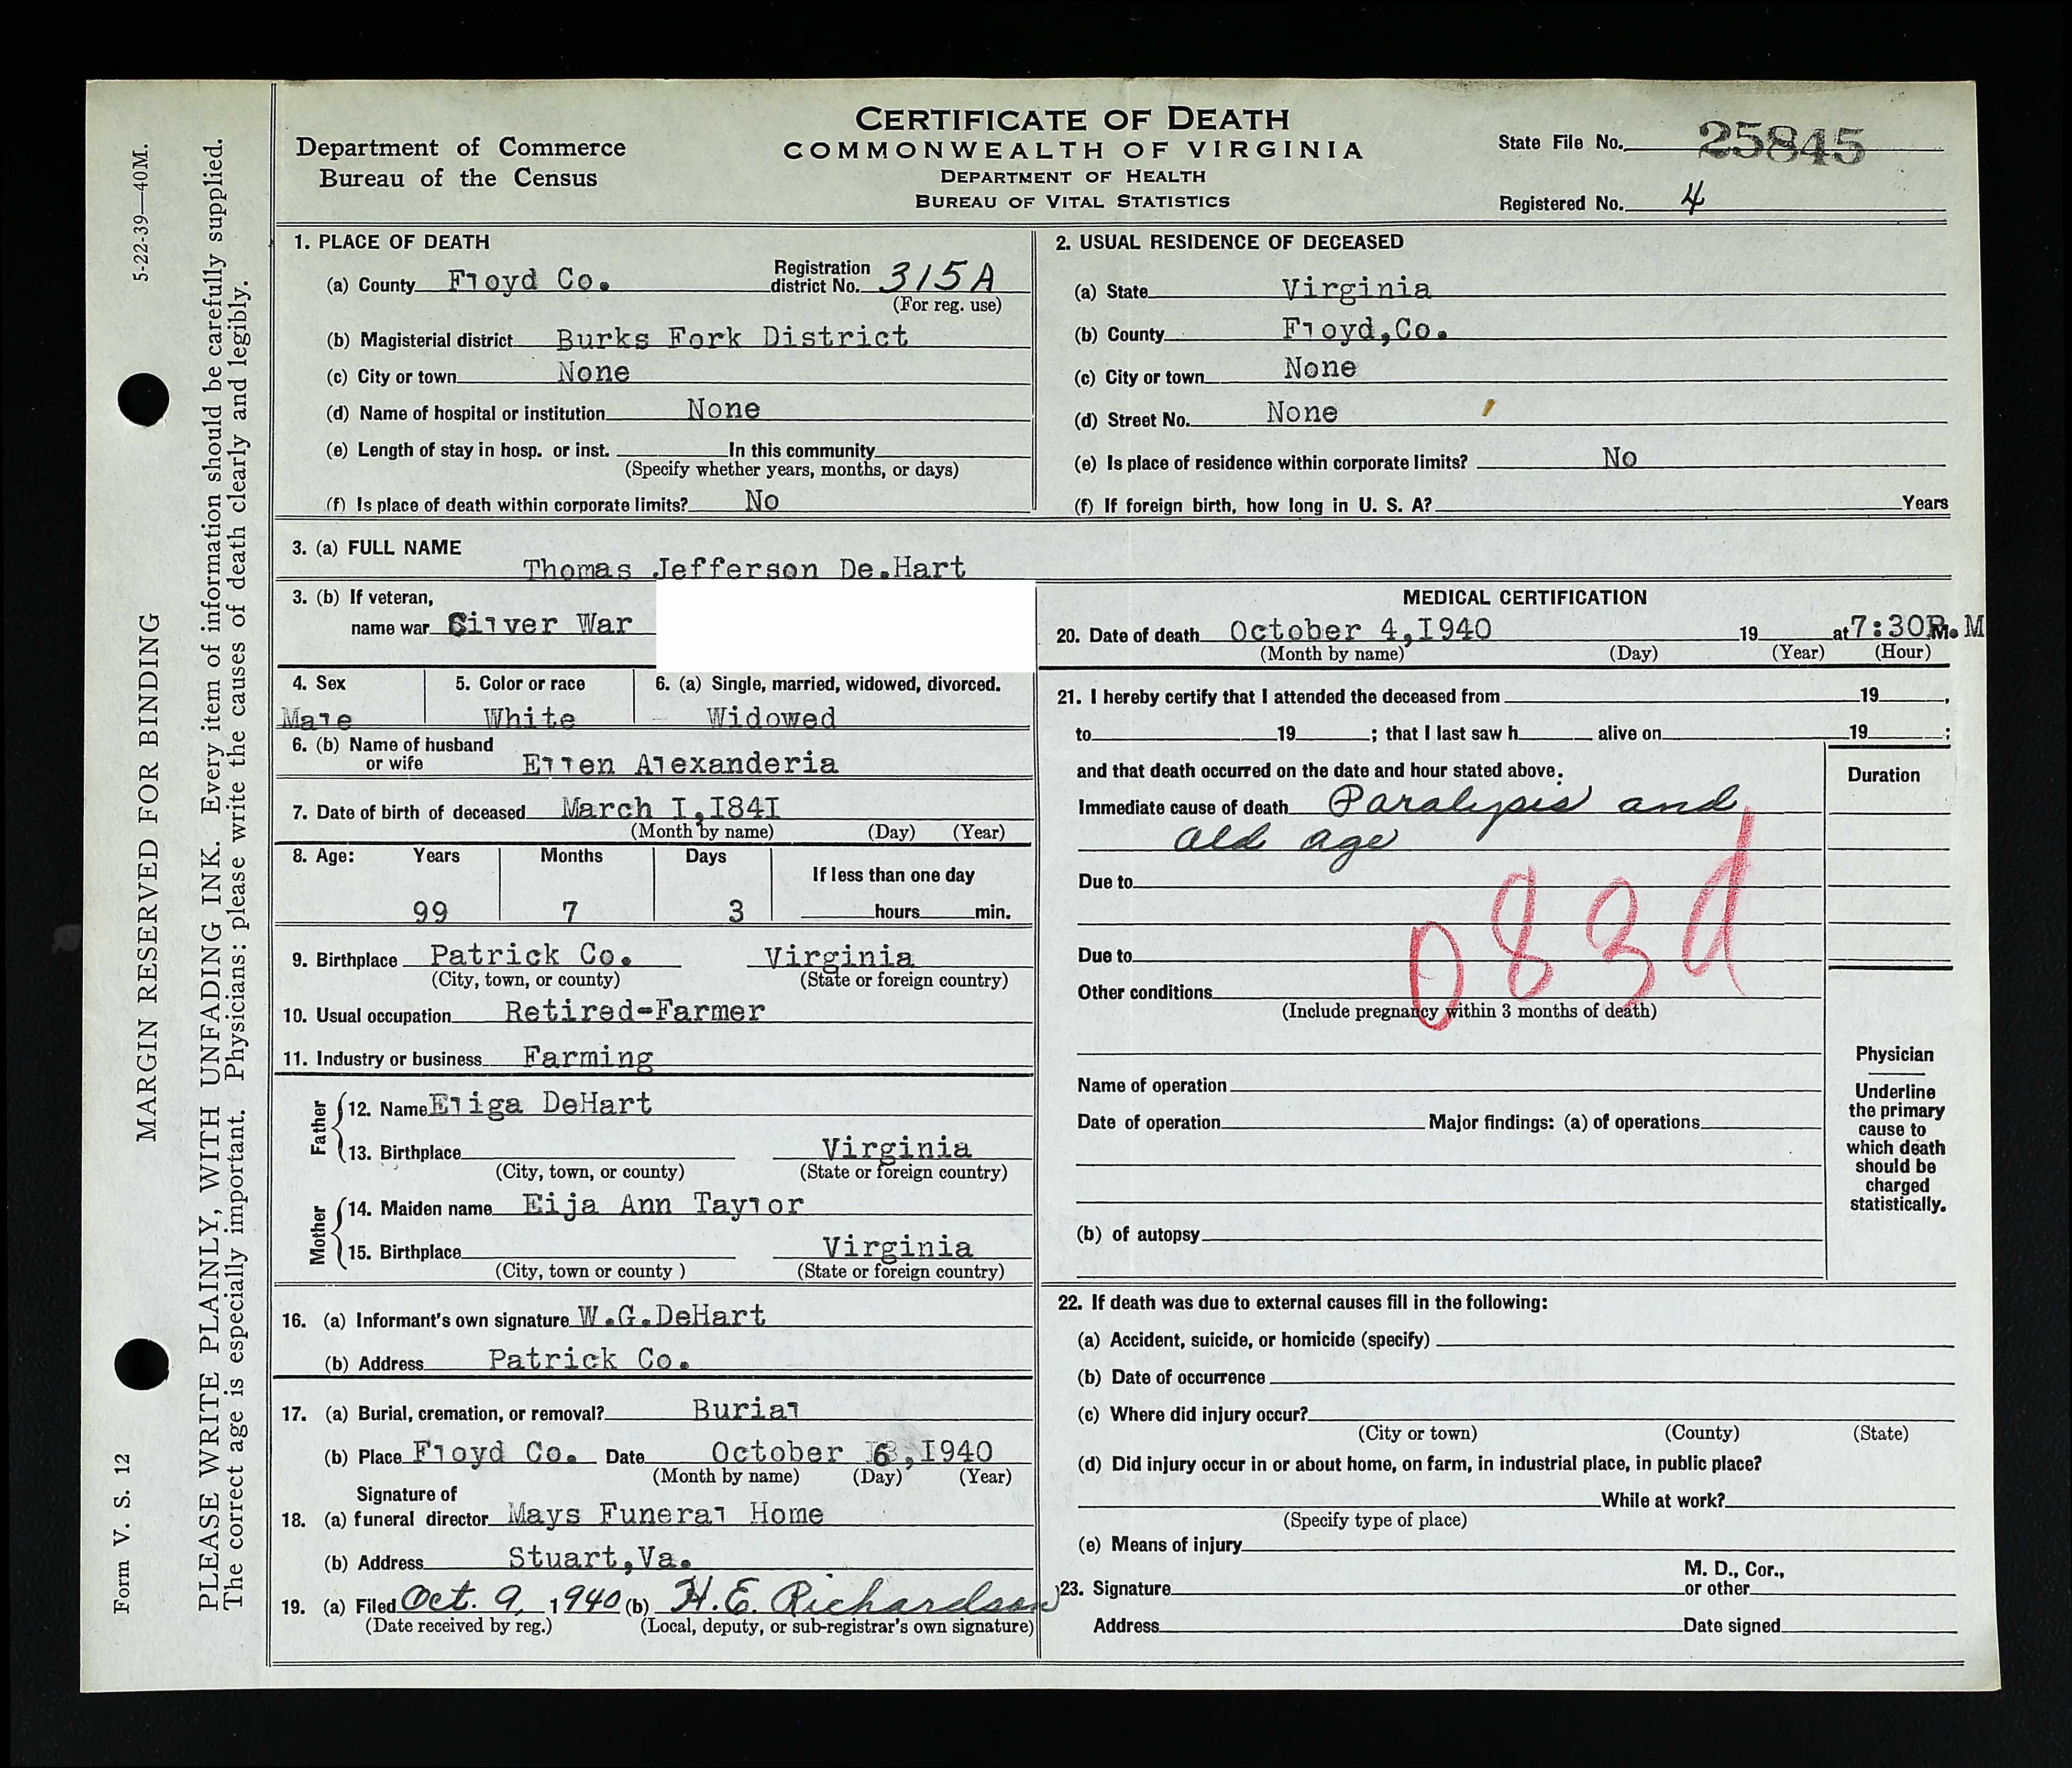 5-22-39—40M.
MARGIN RESERVED FOR BINDING
Form V. S. 12
PLEASE WRITE PLAINLY, WITH UNFADING INK. Every item of information should be carefully supplied.
The correct age is especially important. Physicians: please write the causes of death clearly and legibly.
Department of Commerce
Bureau of the Census
CERTIFICATE OF DEATH
COMMONWEALTH OF VIRGINIA
DEPARTMENT OF HEALTH
BUREAU OF VITAL STATISTICS
State File No. 25845
Registered No. 4
1. PLACE OF DEATH
(a) County Floyd Co. Registration district No. 315A
(For reg. use)
(b) Magisterial district Burks Fork District
(c) City or town None
(d) Name of hospital or institution None
(e) Length of stay in hosp. or inst. In this community
(Specify whether years, months, or days)
(f) Is place of death within corporate limits? No
2. USUAL RESIDENCE OF DECEASED
(a) State Virginia
(b) County Floyd,Co.
(c) City or town None
(d) Street No. None
(e) Is place of residence within corporate limits? No
(f) If foreign birth, how long in U. S. A? Years
3. (a) FULL NAME
Thomas Jefferson De.Hart
3. (b) If veteran,
name war Silver War
4. Sex 5. Color or race 6. (a) Single, married, widowed, divorced.
Male White Widowed
6. (b) Name of husband
or wife Ellen Alexanderia
7. Date of birth of deceased March I,I84I
(Month by name) (Day) (Year)
8. Age: Years Months Days If less than one day
99 7 3 hours min.
9. Birthplace Patrick Co. Virginia
(City, town, or county) (State or foreign country)
10. Usual occupation Retired-Farmer
11. Industry or business Farming
Father
12. Name Eliga DeHart
13. Birthplace Virginia
(City, town, or county) (State or foreign country)
Mother
14. Maiden name Eija Ann Taylor
15. Birthplace Virginia
(City, town or county ) (State or foreign country)
16. (a) Informant's own signature W.G.DeHart
(b) Address Patrick Co.
17. (a) Burial, cremation, or removal? Burial
(b) Place Floyd Co. Date October 6,I940
(Month by name) (Day) (Year)
Signature of
18. (a) funeral director Mays Funeral Home
(b) Address Stuart,Va.
19. (a) Filed Oct. 9, 1940 (b) H. E. Richardson
(Date received by reg.) (Local, deputy, or sub-registrar's own signature)
MEDICAL CERTIFICATION
20. Date of death October 4,I940 19 at 7:30P.M
(Month by name) (Day) (Year) (Hour)
21. I hereby certify that I attended the deceased from 19 ,
to 19 ; that I last saw h alive on 19 ;
and that death occurred on the date and hour stated above.
Duration
Immediate cause of death Paralysis and
old age
Due to
083d
Due to
Other conditions
(Include pregnancy within 3 months of death)
Name of operation
Date of operation Major findings: (a) of operations
(b) of autopsy
Physician
Underline
the primary
cause to
which death
should be
charged
statistically.
22. If death was due to external causes fill in the following:
(a) Accident, suicide, or homicide (specify)
(b) Date of occurrence
(c) Where did injury occur?
(City or town) (County) (State)
(d) Did injury occur in or about home, on farm, in industrial place, in public place?
While at work?
(Specify type of place)
(e) Means of injury
M. D., Cor.,
23. Signature or other
Address Date signed